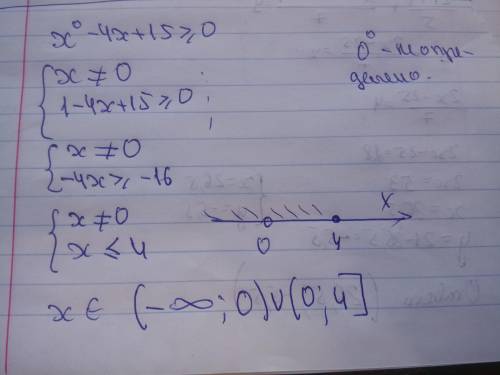 x⁰-4x+15≥0
0⁰-неопре-
делено.
{x≠0
1-4x+15≥0;
{x≠0
-4x≥-16
{x≠0
x≤4
0 4 x
x∈ (-∞;0)∪(0;4]